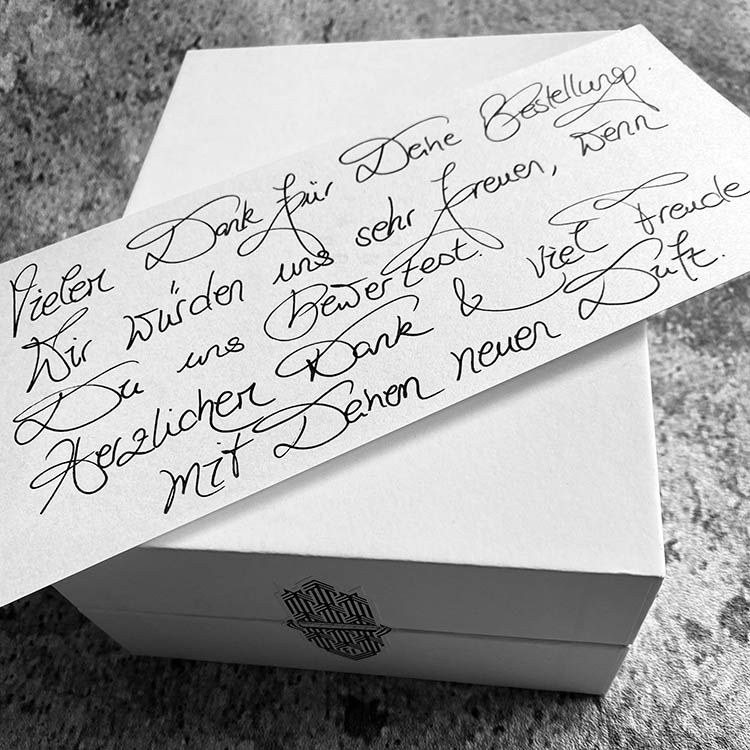 Vielen Dank für Deine Bestellung.
Wir würden uns sehr freuen, wenn
Du uns bewertest.
Herzlichen Dank & viel Freude
mit Deinem neuen Duft.